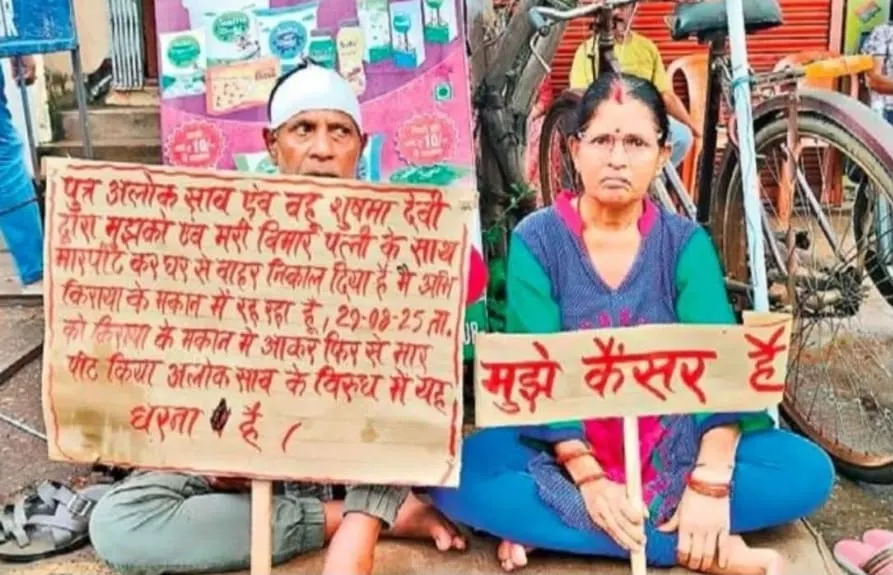 पुत्र अलोक साव एंव वहु शुषमा देवी
द्वारा मुझको एंव मेरी विमार पत्नी के साथ
मारपीट कर घर से वाहर निकाल दिया है मै अभि
किराया के मकान में रह रहा हूँ, 29-08-25 ता.
को किराया के मकान मे आकर फिर से मार
पीट किया अलोक साव के विरुध में यह
धरना है।
मुझे कैंसर है
₹10